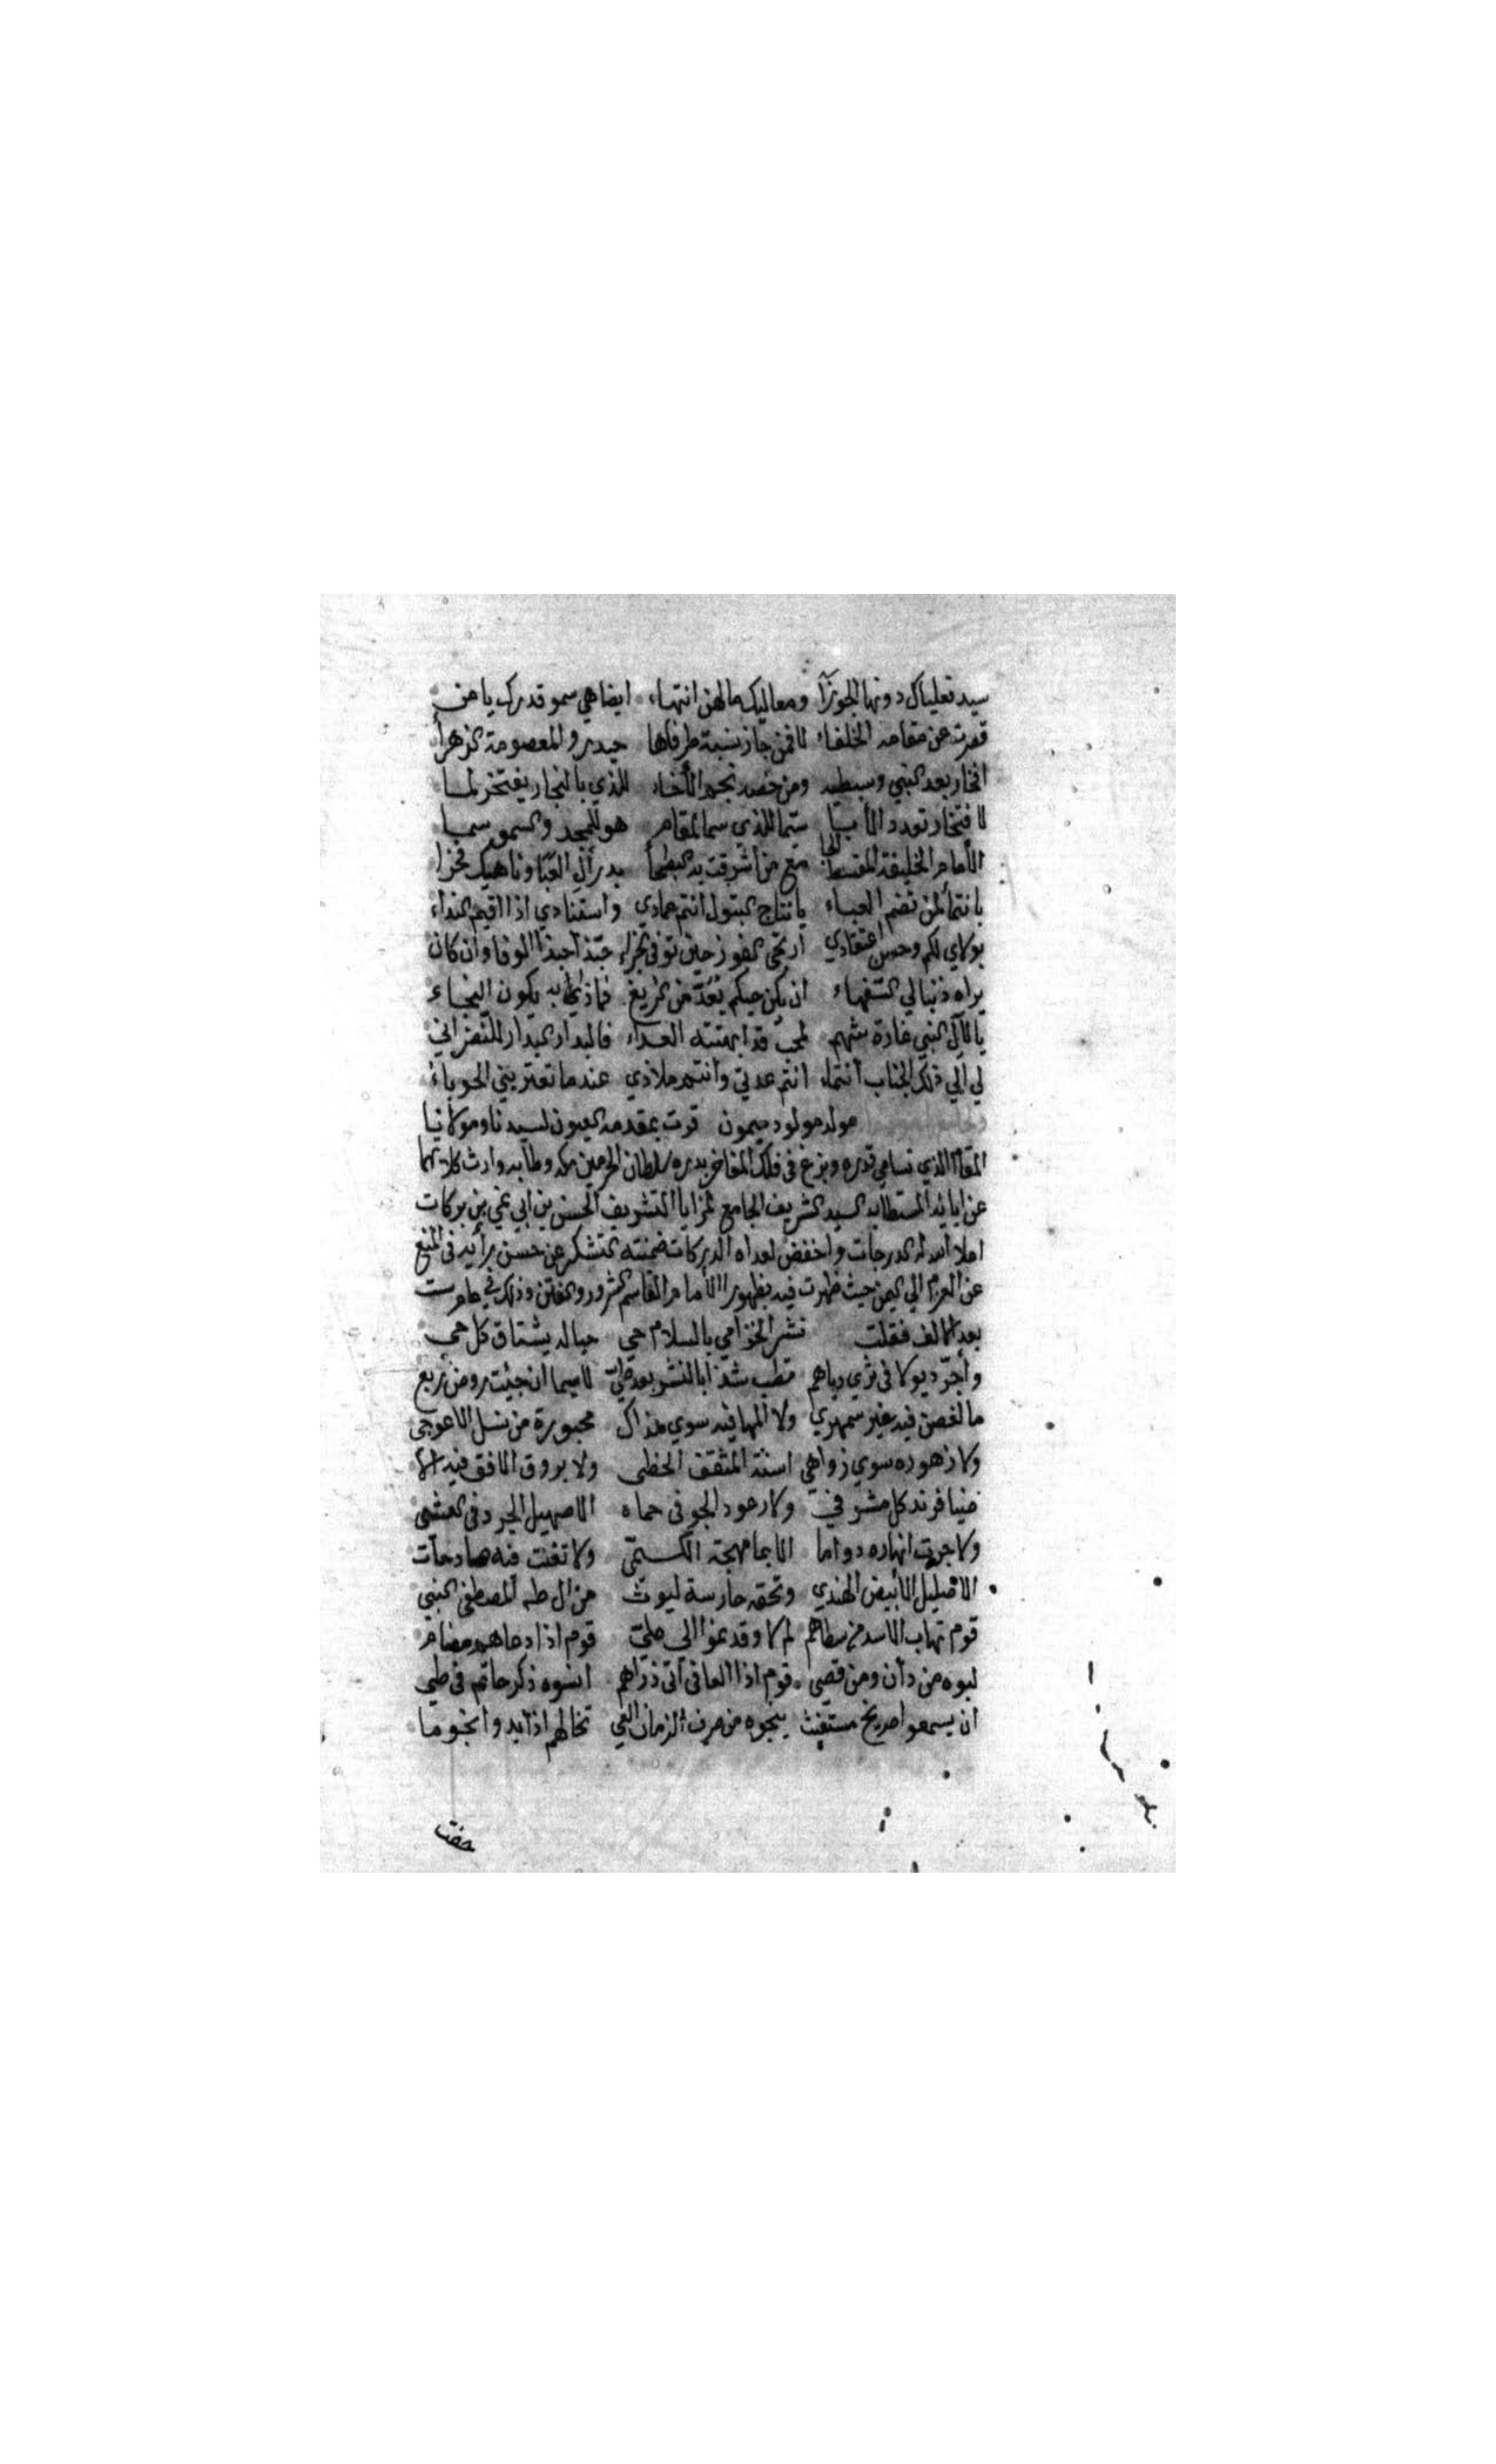 سيد تعلياك دونها الجوزآ ومعاليك مالهن انتهاء ايضاهي سمو قدرك يا من
قصرت عن مقامه الخلفاء لا فمن جاز نسبة طرفاها حيدر والمعصومة الزهرأ
افتخار بعد النبي وسبطيه ومن خصه نجم الأخاء للذي بالنجار يفتخر لما
لافتخار تعدد الأبا سيما للذي سما لمقام هو للمجد والسمو سما
الأمام الخليفة المقسط الحا مع من أشرقت به البطحأ بدر أل العبا وناهيك فخرا
بانتمأ لمن تضم العباء يا نتاج البتول انتم عمادي واستنادي اذا اقيم النداء
بولاي لكم وحسن اعتقادي ارتجى الفوز حين توفى الجزاء حبذا حبذا الوفا وان كان
يراه ذنبا لي السفهاء ان يكن حبكم يعد من الزيغ فماذا به يكون النجاء
يا لأل النبي غارة شهم لمحب قد ابهتته العداء فالبدار البدار للنضر اني
لي الي ذلك الجناب انتماء انتم عدتي وانتم ملاذي عند ما تعتريني الحوباء
مولد مولود ميمون قرت بمقدمه العيون لسيدنا ومولانا
المقام الذي تسامي قدره وبزغ في فلك المفاخر بدره سلطان الحرمين مكه وطابه وارث كلايتهما
عن ابائه المستطابه السيد الشريف الجامع لمزايا التشريف الحسن بن ابي نمي بن بركات
اعلا الله له الدرجات واخفض لعداه الدركات ضمنته التشكر عن حسن رأيه في المنع
عن العزم الي اليمن حيث ظهرت فيه بظهور الأمام القاسم الشرور والفتن وذلك في عام ست
بعد الالف فقلت نشر الخزامي بالسلام حي حيا له يشتاق كل حي
وأجرر ديولا في ثري رباهم تطب شذ ابا لنشر بعد طي لاسيما ان جئت روض ربع
ما لغصن فيه غير سمهري ولا المها فيه سوي مذاك محبورة من نسل الاعوجي
ولا زهوره سوي زواهي اسنة المثقف الخطى ولا بروق الافق فيه الا
ضيا فرند كل مشرفي ولا رعود الجو في حماه الا صهيل الجرد في العشي
ولا جرت انهاره دواما الا بما مهجة الكمي ولا تغنت فيه صادحات
الا صليل الأبيض الهندي وتحته حارسة ليوث من ال طه المصطفى النبي
قوم تهاب الاسد من سطاهم لم لا وقد عزوا الى علي قوم اذا دعاهم مضام
لبوه من دأن ومن قصي قوم اذا العافى أتى ذراهم انسوه ذكر حاتم في طي
ان يسمعوا صريخ مستغيث ينجوه من صرف الزمان الغي تخالهم اذا بدوا نجوما
حفت